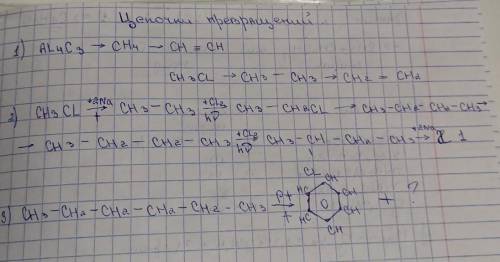 Цепочки превращений
1) AL4C3 → CH4 → CH ≡ CH
CH3CL → CH3 – CH3 → CH2 = CH2
2) CH3CL +2Na → t CH3 – CH3 +CL2 → hν CH3 – CH2CL → CH3–CH2–CH2–CH3 →
→ CH3 – CH2 – CH2 – CH3 +CL2 → hν CH3 – CH – CH2 – CH3 +2Na →
CL
3) CH3–CH2–CH2–CH2–CH2–CH3 Pt → t HC CH CH CH CH HC + ?